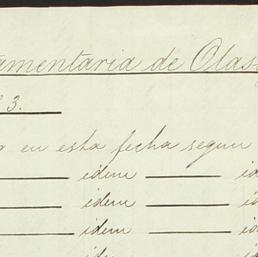 amentaria de Olas
3.
en esta fecha segun
idem
idem
idem
idem